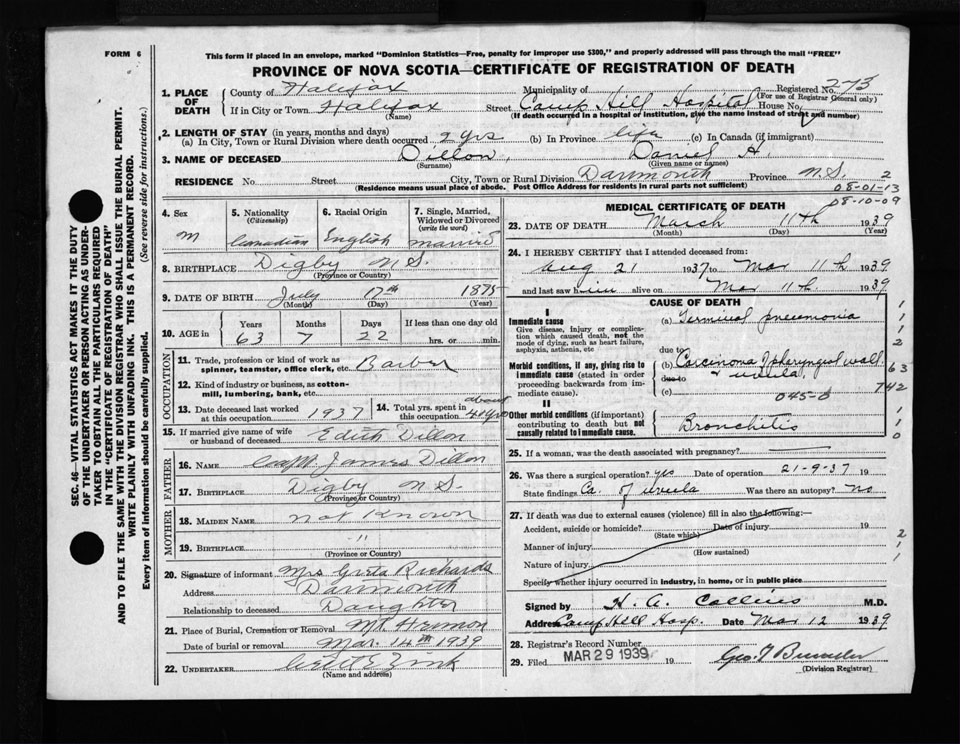 FORM 6
This form if placed in an envelope, marked "Dominion Statistics—Free, penalty for improper use $300," and properly addressed will pass through the mail "FREE"
PROVINCE OF NOVA SCOTIA—CERTIFICATE OF REGISTRATION OF DEATH
Registered No. 273
(For use of Registrar General only)
1. PLACE OF DEATH
County of Halifax Municipality of
If in City or Town Halifax Street Camp Hill Hospital House No.
(Name) (If death occurred in a hospital or institution, give the name instead of street and number)
2. LENGTH OF STAY (in years, months and days)
(a) In City, Town or Rural Division where death occurred 2 yrs (b) In Province life (c) In Canada (if immigrant)
3. NAME OF DECEASED Dillon, Daniel H.
(Surname) (Given name or names)
RESIDENCE No. Street City, Town or Rural Division Dartmouth Province N.S. 2
(Residence means usual place of abode. Post Office Address for residents in rural parts not sufficient) 08-01-13
08-10-09
4. Sex M
5. Nationality (Citizenship) Canadian
6. Racial Origin English
7. Single, Married, Widowed or Divorced (write the word) married
8. BIRTHPLACE Digby N.S.
(Province or Country)
9. DATE OF BIRTH July 17th 1875
(Month) (Day) (Year)
10. AGE in Years Months Days If less than one day old
63 7 22 hrs. or min.
OCCUPATION
11. Trade, profession or kind of work as spinner, teamster, office clerk, etc. Barber
12. Kind of industry or business, as cotton-mill, lumbering, bank, etc.
13. Date deceased last worked at this occupation 1937
14. Total yrs. spent in this occupation about 40 yrs
15. If married give name of wife or husband of deceased Edith Dillon
FATHER
16. NAME Capt. James Dillon
17. BIRTHPLACE Digby N.S.
(Province or Country)
MOTHER
18. MAIDEN NAME not Known
19. BIRTHPLACE "
(Province or Country)
20. Signature of informant Mrs Greta Richards
Address Dartmouth
Relationship to deceased Daughter
21. Place of Burial, Cremation or Removal Mt Hermon
Date of burial or removal Mar. 14th 1939
22. UNDERTAKER Zink
(Name and address)
MEDICAL CERTIFICATE OF DEATH
23. DATE OF DEATH March 11th 1939
(Month) (Day) (Year)
24. I HEREBY CERTIFY that I attended deceased from:
Aug 21 1937 to Mar 11th 1939
and last saw him alive on Mar 11th 1939
CAUSE OF DEATH
I
Immediate cause
Give disease, injury or complication which caused death, not the mode of dying, such as heart failure, asphyxia, asthenia, etc
(a) Terminal pneumonia
due to
Morbid conditions, if any, giving rise to immediate cause (stated in order proceeding backwards from immediate cause).
(b) Carcinoma of pharyngeal wall
due to & uvula
(c)
045-0
II
Other morbid conditions (if important) contributing to death but not causally related to immediate cause.
Bronchitis
1
1
1
2
63
742
1
1
0
25. If a woman, was the death associated with pregnancy?
26. Was there a surgical operation? yes Date of operation 21-9-37 19
State findings Ca. of uvula Was there an autopsy? No
27. If death was due to external causes (violence) fill in also the following:—
Accident, suicide or homicide? Date of injury 19
(State which)
Manner of injury
(How sustained)
Nature of injury
Specify whether injury occurred in industry, in home, or in public place
2
1
1
Signed by H. A. Collins M.D.
Address Camp Hill Hosp. Date Mar 12 1939
28. Registrar's Record Number
29. Filed MAR 29 1939 19
(Division Registrar)
SEC. 46—VITAL STATISTICS ACT MAKES IT THE DUTY
OF THE UNDERTAKER OR PERSON ACTING AS UNDER-
TAKER TO OBTAIN ALL THE PARTICULARS REQUIRED
IN THE "CERTIFICATE OF REGISTRATION OF DEATH"
AND TO FILE THE SAME WITH THE DIVISION REGISTRAR WHO SHALL ISSUE THE BURIAL PERMIT.
WRITE PLAINLY WITH UNFADING INK. THIS IS A PERMANENT RECORD.
Every item of information should be carefully supplied. (See reverse side for instructions.)